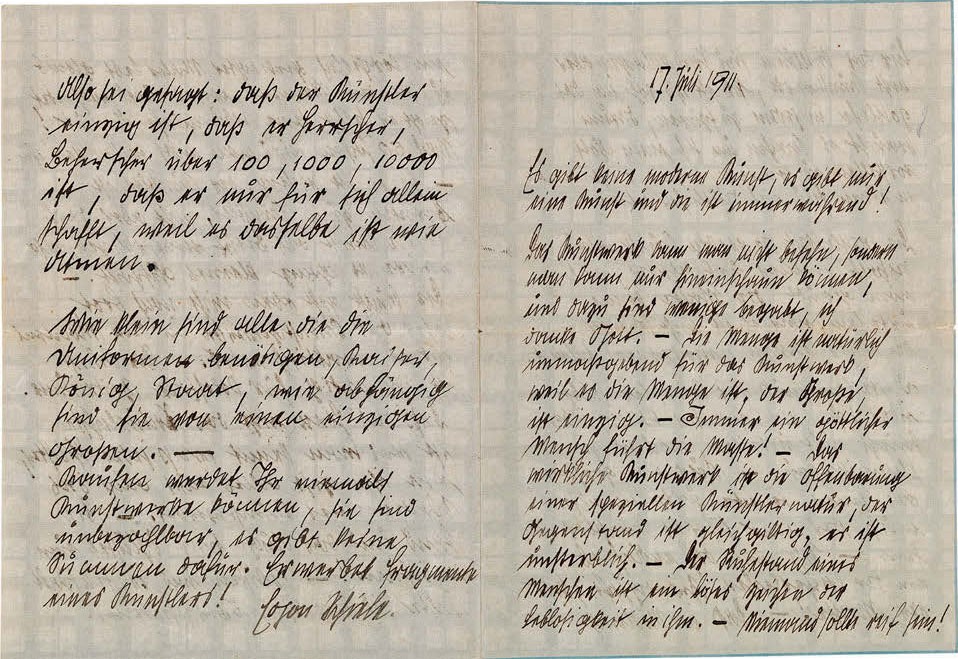 Also sei gesagt: daß der Künstler
einzig ist, daß er Herrscher,
Beherscher über 100, 1000, 10000
ist, daß er nur für sich allein
schafft, weil es dasselbe ist wie
Atmen.
Wie klein sind alle die die
Uniformen benötigen, Kaiser,
König, Staat, wie abhängig
sind sie von einen einzigen
Großen. —
Kaufen werdet Ihr niemals
Kunstwerke können, sie sind
unbezahlbar, es gibt keine
Summen dafür. Erwerbet Fragmente
eines Künstlers!
Egon Schiele.
17. Juli 1911.
Es gibt keine moderne Kunst, es gibt nur
eine Kunst und die ist immerwährend!
Das Kunstwerk kann man nicht besehn, sondern
man kann nur hineinschaun können,
und dazu sind wenige begabt, ich
danke Gott. — Die Menge ist natürlich
unmassgebend für das Kunstwerk,
weil es die Menge ist, der Große,
ist einzig. — Immer ein göttlicher
Mensch führt die Masse! — Das
wirkliche Kunstwerk ist die Offenbarung
einer speziellen Künstlernatur, der
Gegenstand ist gleichgültig, es ist
unsterblich. — Der Ruhestand eines
Menschen ist ein böses Zeichen der
Leblosigkeit in ihm. — Niemand sollte reif sein!